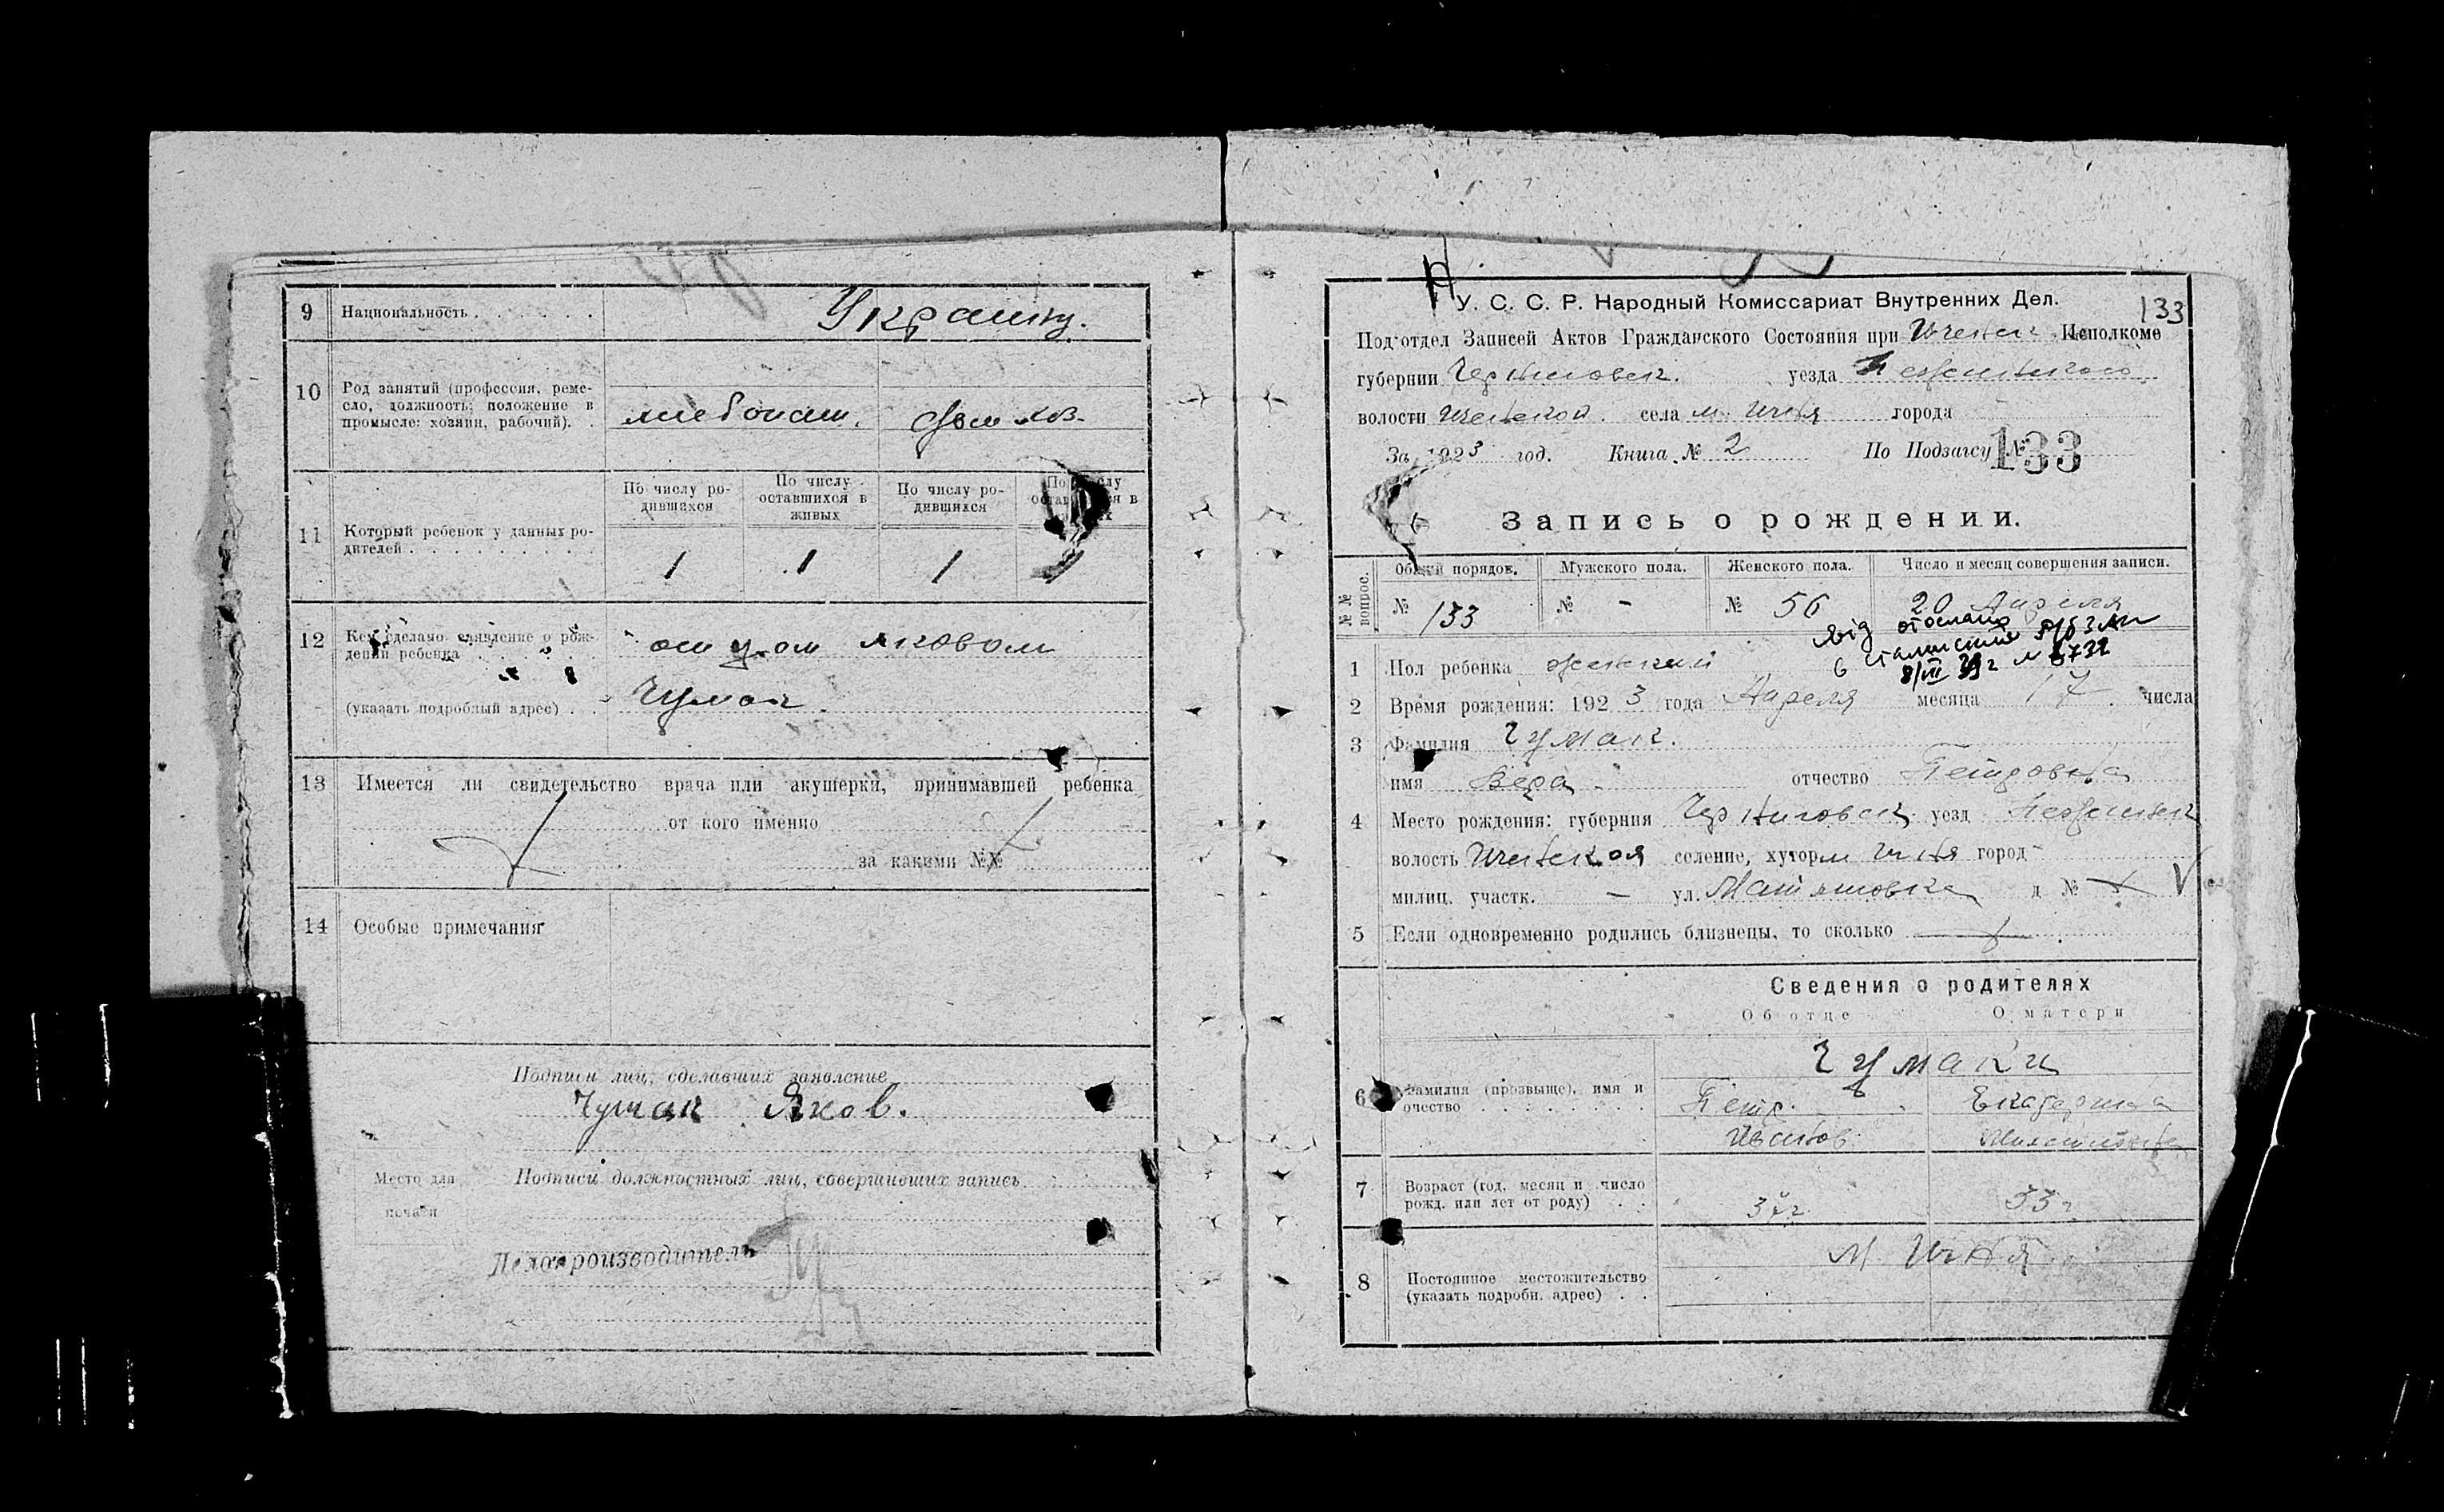 9 Национальность . . . . . . Украинц.
10 Род занятий (профессия, реме-
сло, должность; положение в
промысле: хозяин, рабочий). . хлебопаш. дом хоз.
По числу ро-
дившихся
По числу
оставшихся в
живых
По числу ро-
дившихся
11 Который ребенок у данных ро-
дителей . . . . . . . . . 1 1 1 1
12 Кем сделано заявление о рож-
дении ребенка отцом Яковом
(указать подробный адрес) . . Чумак.
13 Имеется ли свидетельство врача или акушерки, принимавшей ребенка
от кого именно
за какими №№
14 Особые примечания
Подписи лиц, сделавших заявление
Чумак Яков.
Место для
печати
Подписи должностных лиц, совершивших запись
Делопроизводитель
У. С. С. Р. Народный Комиссариат Внутренних Дел. 133
Под'отдел Записей Актов Гражданского Состояния при Иченск. Исполкоме
губернии Черниговск. уезда Нежинского
волости Иченской села м. Ичня города
За 1923 год. Книга № 2 По Подзагсу № 133
Запись о рождении.
№№ вопрос. Общий порядок. Мужского пола. Женского пола. Число и месяц совершения записи.
№ 133 № - № 56 20 Апреля
отослано
в Сталинский
8/III 39 г №
1 Пол ребенка женский
2 Время рождения: 1923 года Апреля месяца 17 числа
3 Фамилия Чумак.
имя Вера отчество Петровна
4 Место рождения: губерния Черниговск уезд Нежинск
волость Иченская селение, хутор м Ичня город -
милиц. участк. - ул. Матяшовка д №
5 Если одновременно родились близнецы, то сколько
Сведения о родителях
Об отце О матери
Чумаки
6 Фамилия (прозвыще), имя и
очество . . . . . . . . Петр Екатерина
Иванов. Михайловна
7 Возраст (год, месяц и число
рожд. или лет от роду) . . 37 г 33 г
М. Ичня
8 Постоянное местожительство
(указать подробн. адрес) . .